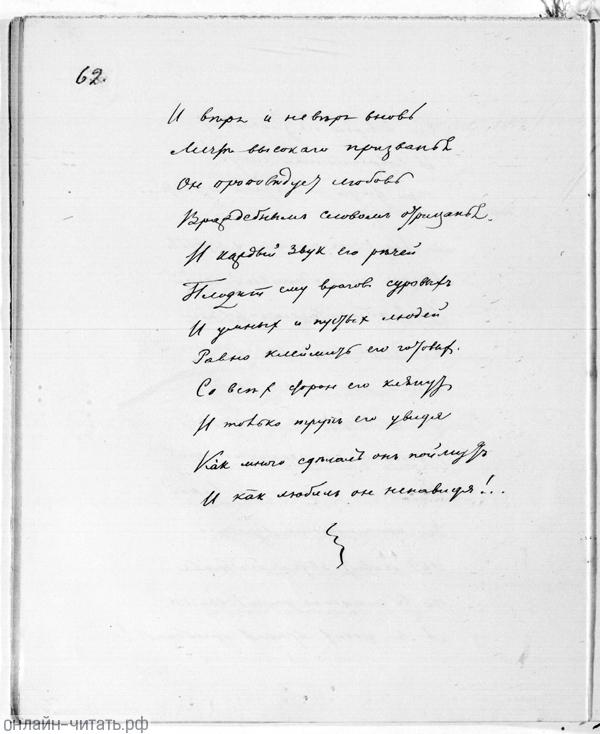 62.
И вѣря и не вѣря вновь
Мечтѣ высокаго призванья
Он проповѣдует любовь
Враждебнымъ словомъ отрицанья.
И каждый звук его рѣчей
Плодит ему врагов суровыхъ
И умных и пустых людей
Равно клеймить его готовых.
Со всѣх сторон его клянут
И только трупъ его увидя
Как много сдѣлалъ онъ поймутъ
И как любилъ он ненавидя!..
онлайн-читать.рф